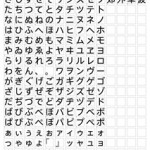 たちつてとタチツテト
なにぬねのナニヌネノ
はひふへほハヒフヘホ
まみむめもマミムメモ
やゐゆゑよヤヰユヱヨ
らりるれろラリルレロ
わをん、。ワヲンヴー
がぎぐげごガギグゲゴ
ざじずぜぞザジズゼゾ
だぢづでどダヂヅデド
ばびぶべぼバビブベボ
ぱぴぷぺぽパピプペポ
ぁぃぅぇぉァィゥェォ
っゃゅょ「」ッャュョ